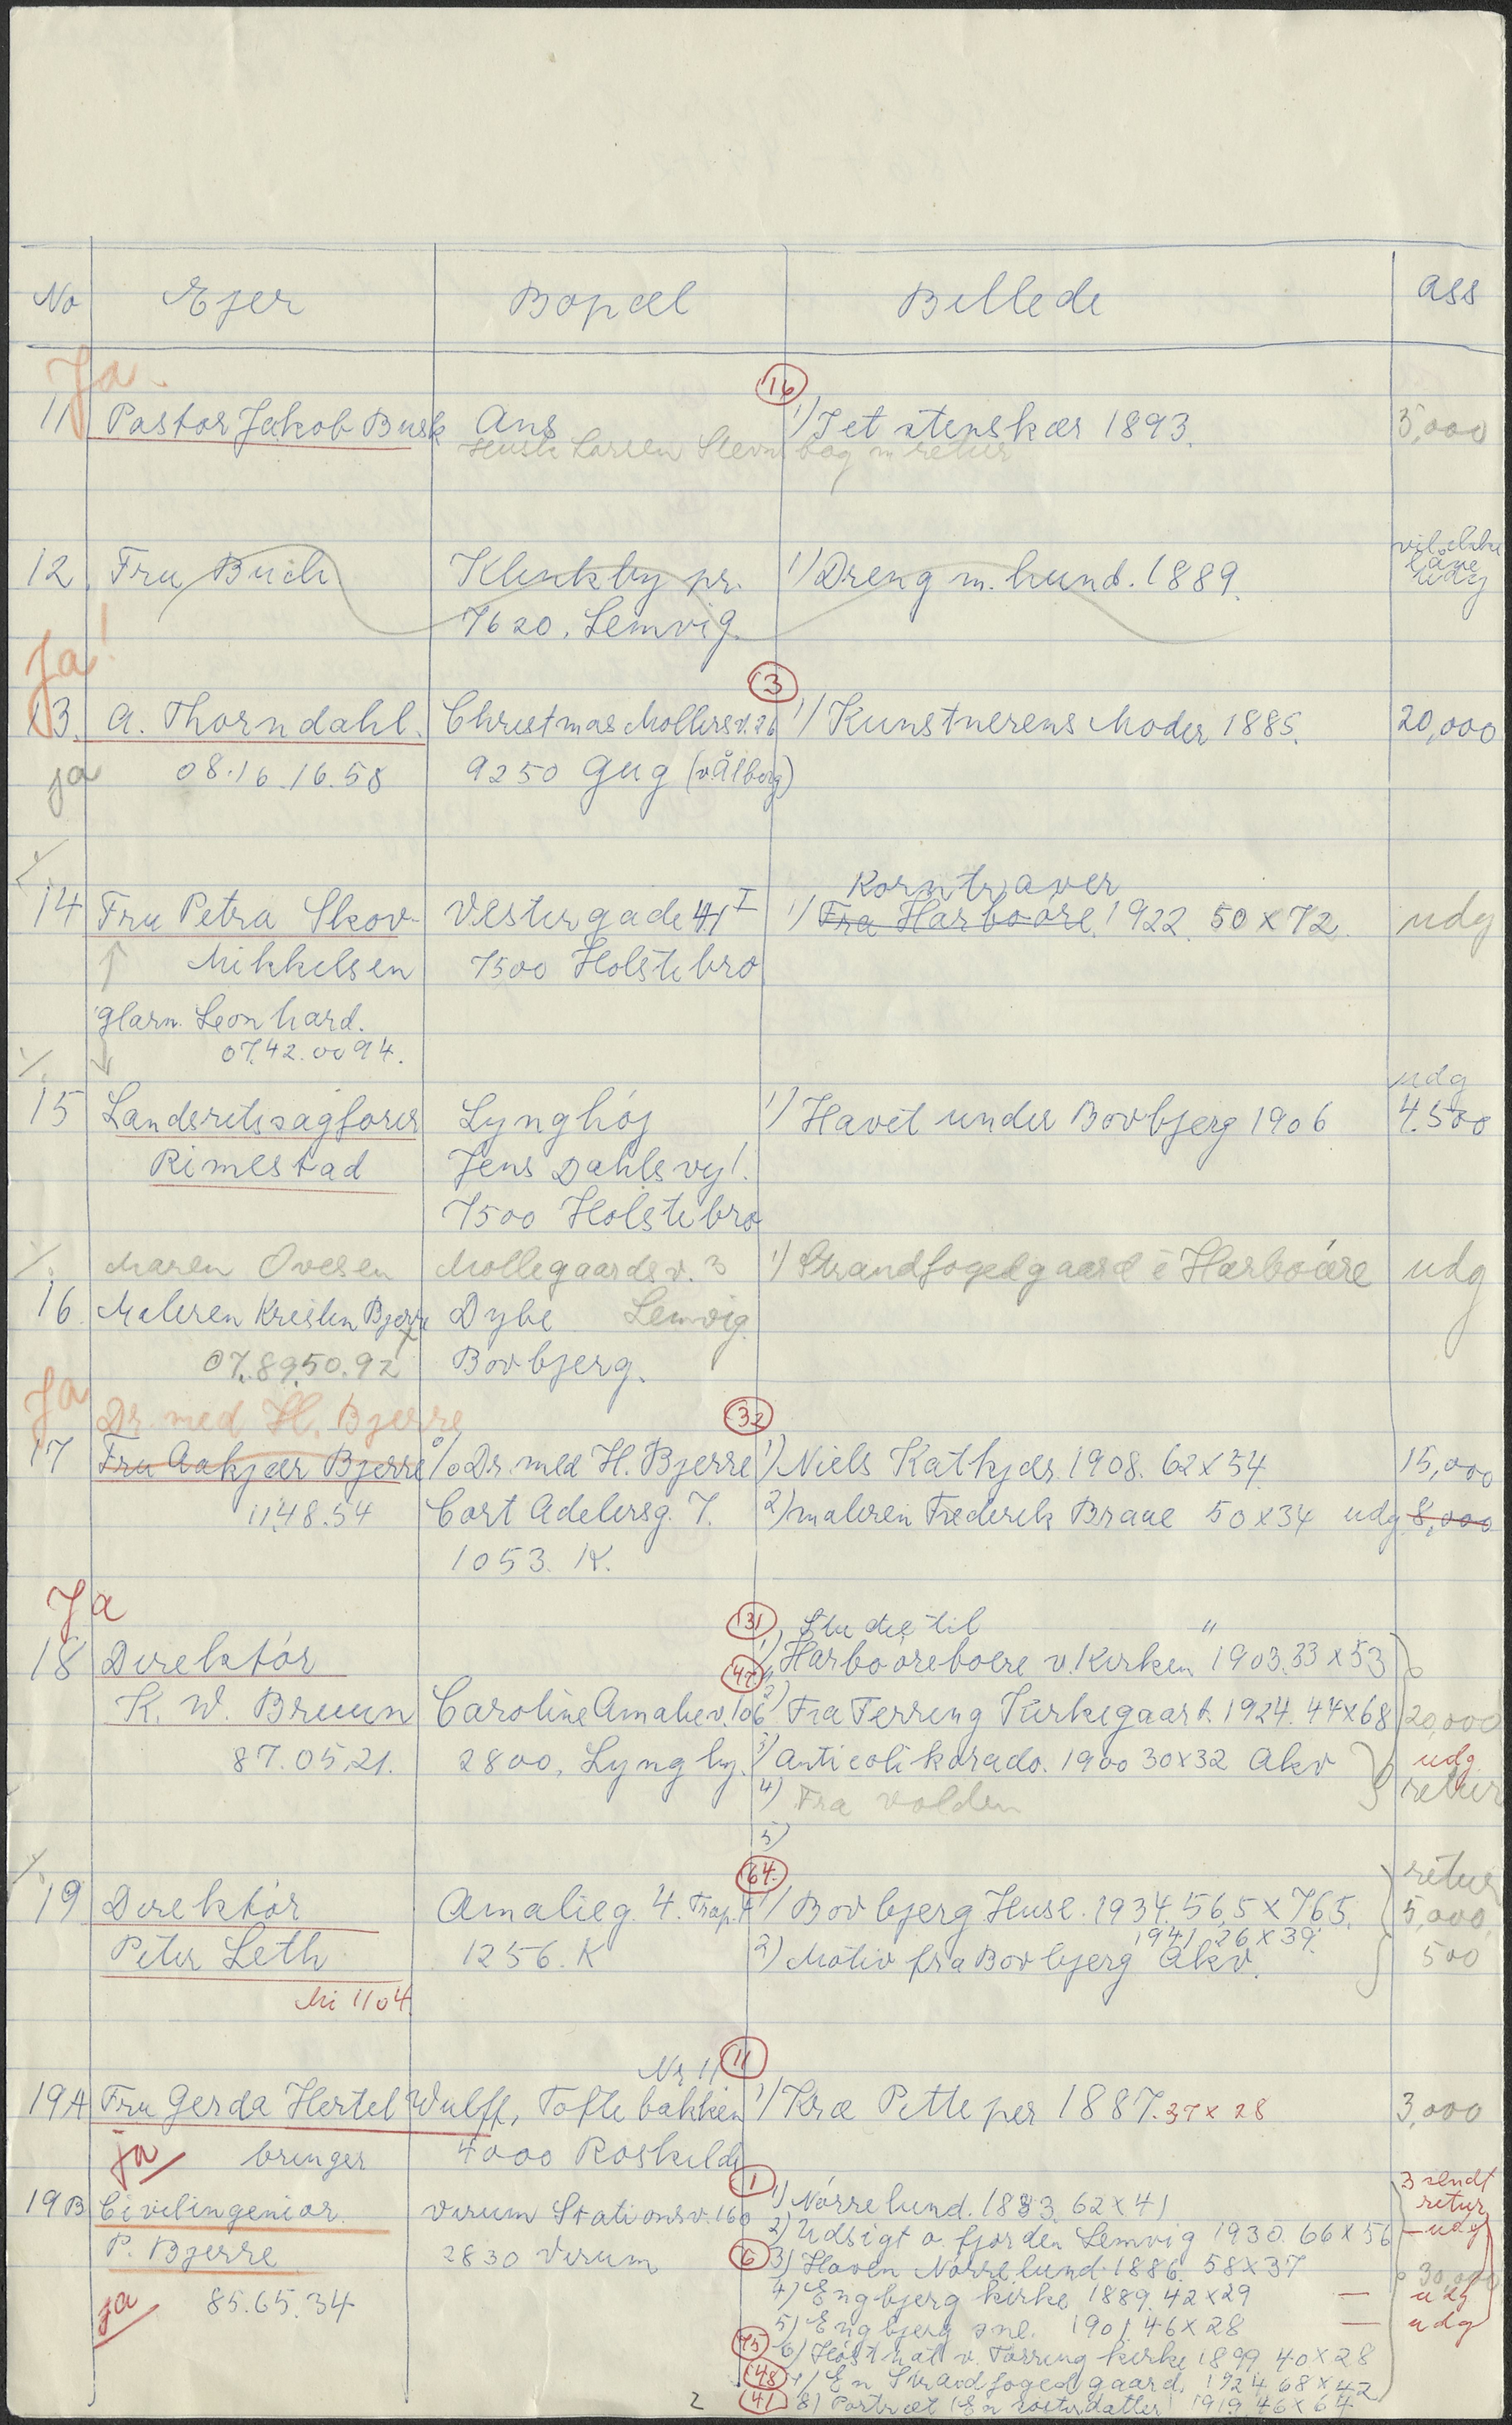 No Ejer Bopæl Billede ass
Ja.
11 Pastor Jakob Busk Ans (16) 1) I et stenskær 1893. 5,000
Husk Larsen Stevns bog m retur
12. Fru Buch Klinkby pr. 1) Dreng m. hund. 1889. vil ikke låne udg
7620. Lemvig.
Ja!
(3)
13. A. Thorndahl. Christmas Møllersv. 26 1) Kunstnerens Moder 1885. 20,000
ja 08.16.16.58 9250 Gug (v. Ålborg)
%
Korntraver
14 Fru Petra Skov- Vestergade 41 I 1) Fra Harboøre 1922. 50 x 72. udg
↑ Mikkelsen 7500 Holstebro
Glarm. Leonhard.
↓ 07.42.0094.
%
udg
15 Landsretssagfører Lynghøj 1) Havet under Bovbjerg 1906 4.500
Rimestad Jens Dahlsvej 1.
7500 Holstebro
%. Maren Ovesen Møllegaardsv. 3 1) Strandfogedgaard i Harboøre udg
16. Maleren Kresten Bjerre Dybe Lemvig.
07.89.50.92 Bovbjerg.
Ja Dr. med H. Bjerre (32)
17 Fru Aakjær Bjerre % Dr. med H. Bjerre 1) Niels Katkjær. 1908. 62 x 54. 15,000
11.48.54 Cort Adelersg. 7. 2) maleren Frederik Braae 50 x 34 udg 8,000
1053. K.
Ja
(31) Studie til "
18 Direktør 1) Harboøreboere v. Kirken 1903. 33 x 53
(47)
K. W. Bruun Caroline Amaliev. 106 2) Fra Ferring Kirkegaard. 1924. 44 x 68 20,000
87.05.21. 2800, Lyngby. 3) Anticoli korado. 1900 30 x 32 Akv udg
4) Fra volden retur
5)
%. (64) retur
19 Direktør Amalieg. 4. Trap. F 1) Bovbjerg Huse. 1934. 56,5 x 76,5. 5,000
1941 26 x 39.
Peter Leth 1256. K 2) Motiv fra Bovbjerg Akv. 500
Mi 1104
Nr 11 (11)
19A Fru Gerda Hertel Wulff, Toftebakken 1) Kræ Pitteper 1887. 37 x 28 3,000
ja bringer 4000 Roskilde
(1) 3 sendt
19B Civilingeniør. Virum Stationsv. 160 1) Nørrelund. 1883. 62 x 41 retur
2) Udsigt o. fjorden Lemvig 1930. 66 x 56 — udg
P. Bjerre 2830 Virum (6) 3) Haven Nørrelund. 1886. 58 x 37 30,000
ja 85.65.34 4) Engbjerg kirke 1889. 42 x 29 — udg
5) Engbjerg sne. 1901. 46 x 28 — udg
(75) 6) Høstnat v. Tørring kirke 1899 40 x 28
(48) 7) En Strandfogedgaard. 1924 68 x 42
2 (41) 8) Portræt (En søsterdatter) 1919. 46 x 64